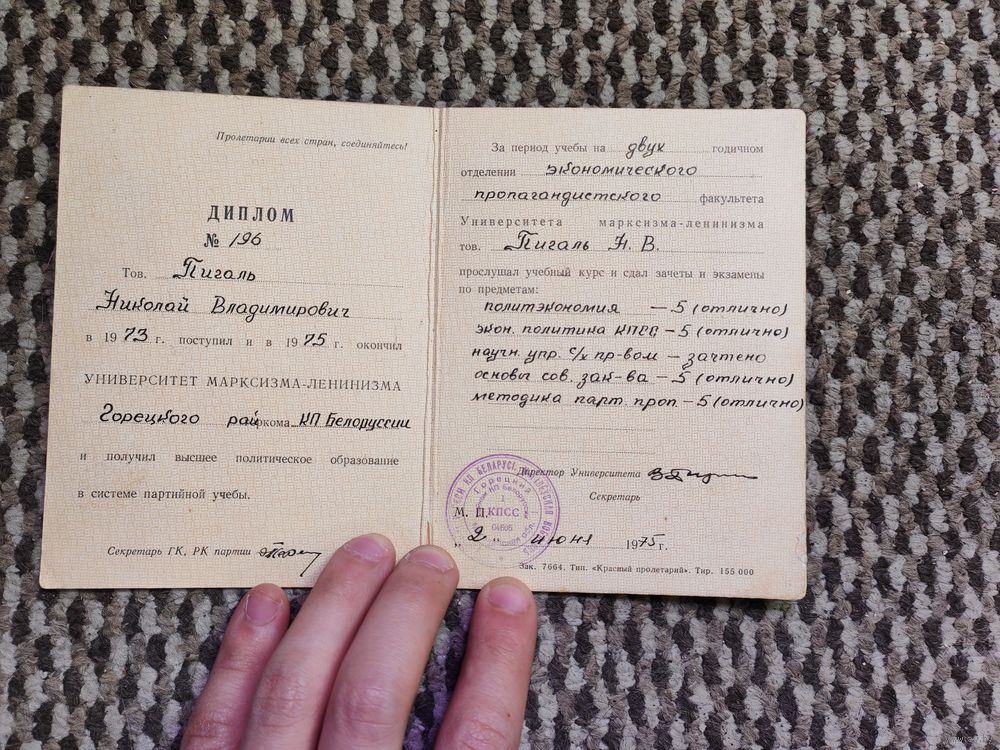 Пролетарии всех стран, соединяйтесь!
ДИПЛОМ
№ 196
Тов. Пигаль
Николай Владимирович
в 1973 г. поступил и в 1975 г. окончил
УНИВЕРСИТЕТ МАРКСИЗМА-ЛЕНИНИЗМА
Горецкого райкома КП Белоруссии
и получил высшее политическое образование
в системе партийной учебы.
Секретарь ГК, РК партии
За период учебы на двух годичном
отделении экономического
пропагандистского факультета
Университета марксизма-ленинизма
тов. Пигаль Н. В.
прослушал учебный курс и сдал зачеты и экзамены
по предметам:
политэкономия — 5 (отлично)
экон. политика КПСС – 5 (отлично)
научн. упр. с/х пр-вом – зачтено
основы сов. зак-ва – 5 (отлично)
методика парт. проп – 5 (отлично)
Директор Университета
Секретарь
М. П.
КПСС
Горецкий
„2„ июня 1975 г.
Зак. 7664. Тип. «Красный пролетарий». Тир. 155.000